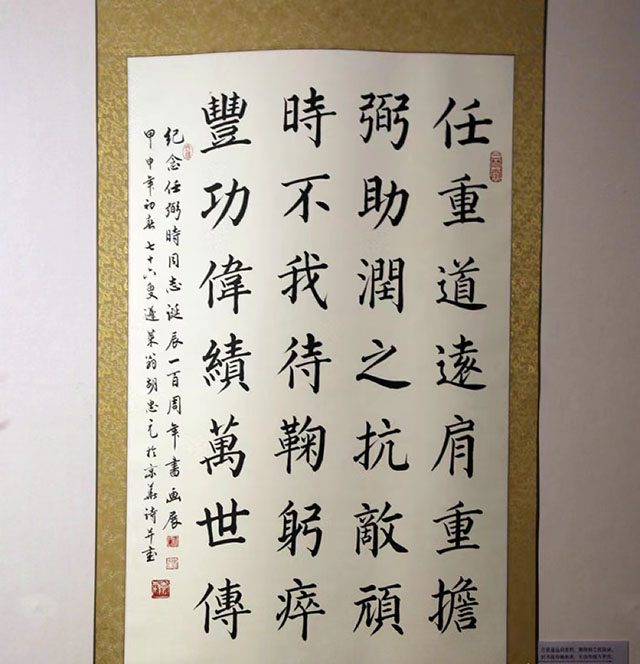 任重道遠肩重擔
弼助潤之抗敵頑
時不我待鞠躬瘁
豐功偉績萬世傳
紀念任弼時同志誕辰一百周年書画展
甲申年初春七十六叟遵榮翁胡忠元於京華詩并書